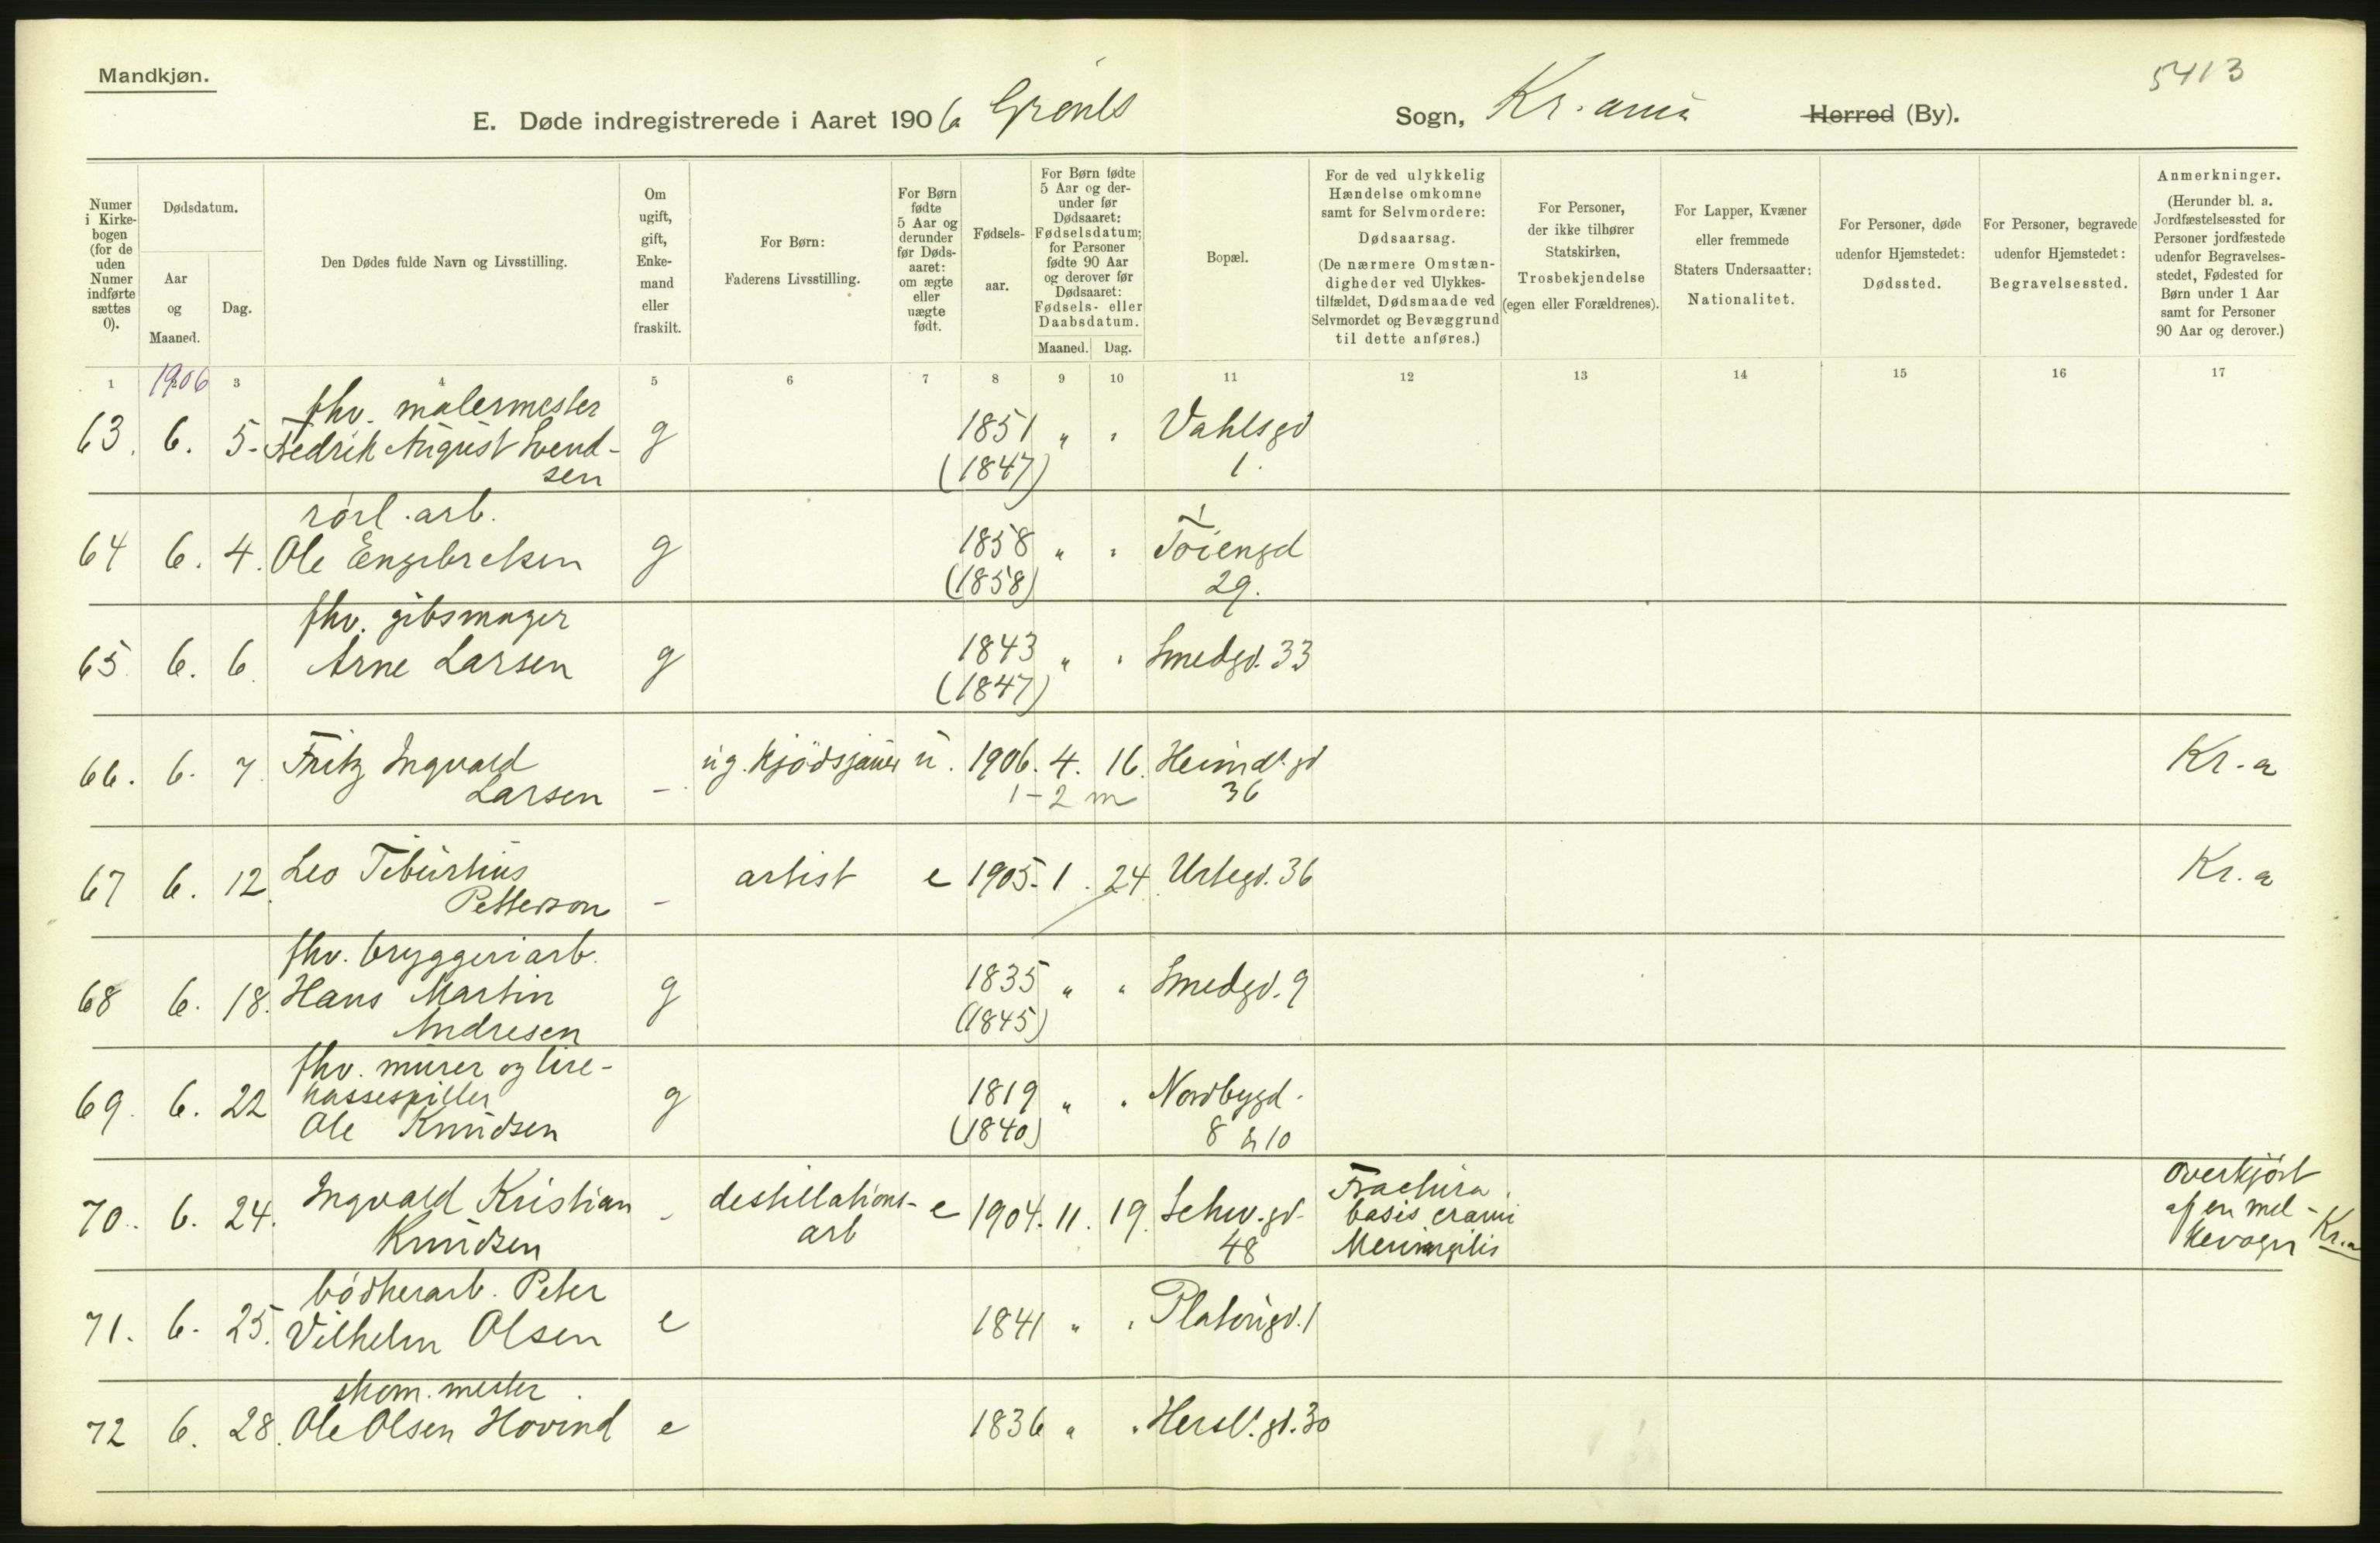 Mandkjøn.
5413
E. Døde indregistrerede i Aaret 1906 Grønls Sogn, Kr.ania Herred (By).
Numer i Kirkebogen (for de uden Numer indførte sættes 0).
Dødsdatum.
Aar og Maaned.
Dag.
Den Dødes fulde Navn og Livsstilling.
Om ugift, gift, Enkemand eller fraskilt.
For Børn: Faderens Livsstilling.
For Børn fødte 5 Aar og derunder før Dødsaaret: om ægte eller uægte født.
Fødselsaar.
For Børn fødte 5 Aar og derunder før Dødsaaret: Fødselsdatum; for Personer fødte 90 Aar og derover før Dødsaaret: Fødsels- eller Daabsdatum.
Maaned. Dag.
Bopæl.
For de ved ulykkelig Hændelse omkomne samt for Selvmordere: Dødsaarsag. (De nærmere Omstændigheder ved Ulykkestilfældet, Dødsmaade ved Selvmordet og Bevæggrund til dette anføres.)
For Personer, der ikke tilhører Statskirken, Trosbekjendelse (egen eller Forældrenes).
For Lapper, Kvæner eller fremmede Staters Undersaatter: Nationalitet.
For Personer, døde udenfor Hjemstedet: Dødssted.
For Personer, begravede udenfor Hjemstedet: Begravelsessted.
Anmerkninger. (Herunder bl. a. Jordfæstelsessted for Personer jordfæstede udenfor Begravelsesstedet, Fødested for Børn under 1 Aar samt for Personer 90 Aar og derover.)
1 1906 3 4 5 6 7 8 9 10 11 12 13 14 15 16 17
fhv. malermester
63. 6. 5. Fredrik August Svend- g 1851 " " Vahlsgd
sen (1847) 1.
rörl. arb.
64 6. 4. Ole Engebretsen g 1858 " " Töiengd
(1858) 29.
fhv. gibsmager
65. 6. 6. Arne Larsen g 1843 " " Smedgd. 33
(1847)
66. 6. 7. Fritz Ingvald - ug. u. 1906. 4. 16. Heimdl. gd Kr.a
Larsen 1-2 m 36
67 6. 12. Leo Tiburtius artist e 1905. 1. 24. Urtegd. 36 Kr.a
Petterson -
fhv. bryggeriarb.
68 6. 18. Hans Martin g 1835 " " Smedgd. 9
Andresen (1845)
fhv. murer og lire-
kassespiller
69. 6. 22 Ole Knudsen g 1819 " " Nordbygd.
(1840) 8 & 10
70. 6. 24. Ingvald Kristian - destillations- e 1904. 11. 19. Schw. gd. Fractura overkjört
Knudsen arb 48 basis cranii af en mel-
Meningitis kevogn Kr.a
bödkerarb. Peter
71. 6. 25. Vilhelm Olsen e 1841 " " Platougd. 1
skom. mester
72 6. 28. Ole Olsen Hovind e 1836 " " Hersl. gd. 30